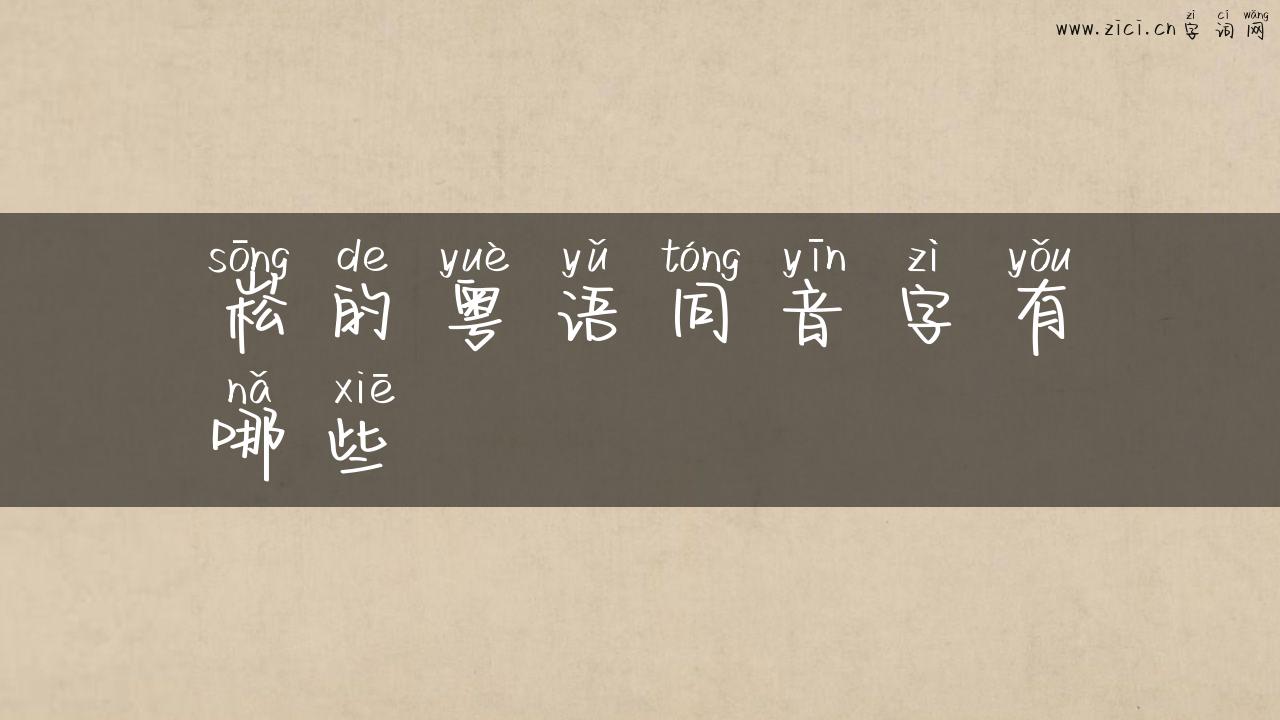 zì cí wǎng
www.zici.cn 字 词 网
sōng de yuè yǔ tóng yīn zì yǒu
崧 的 粤 语 同 音 字 有
nǎ xiē
哪 些